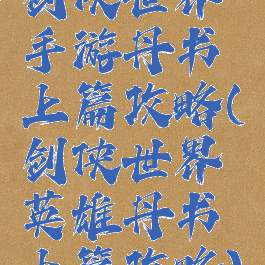 剑侠世界
手游丹书
上篇攻略(
剑侠世界
英雄丹书
上篇攻略)